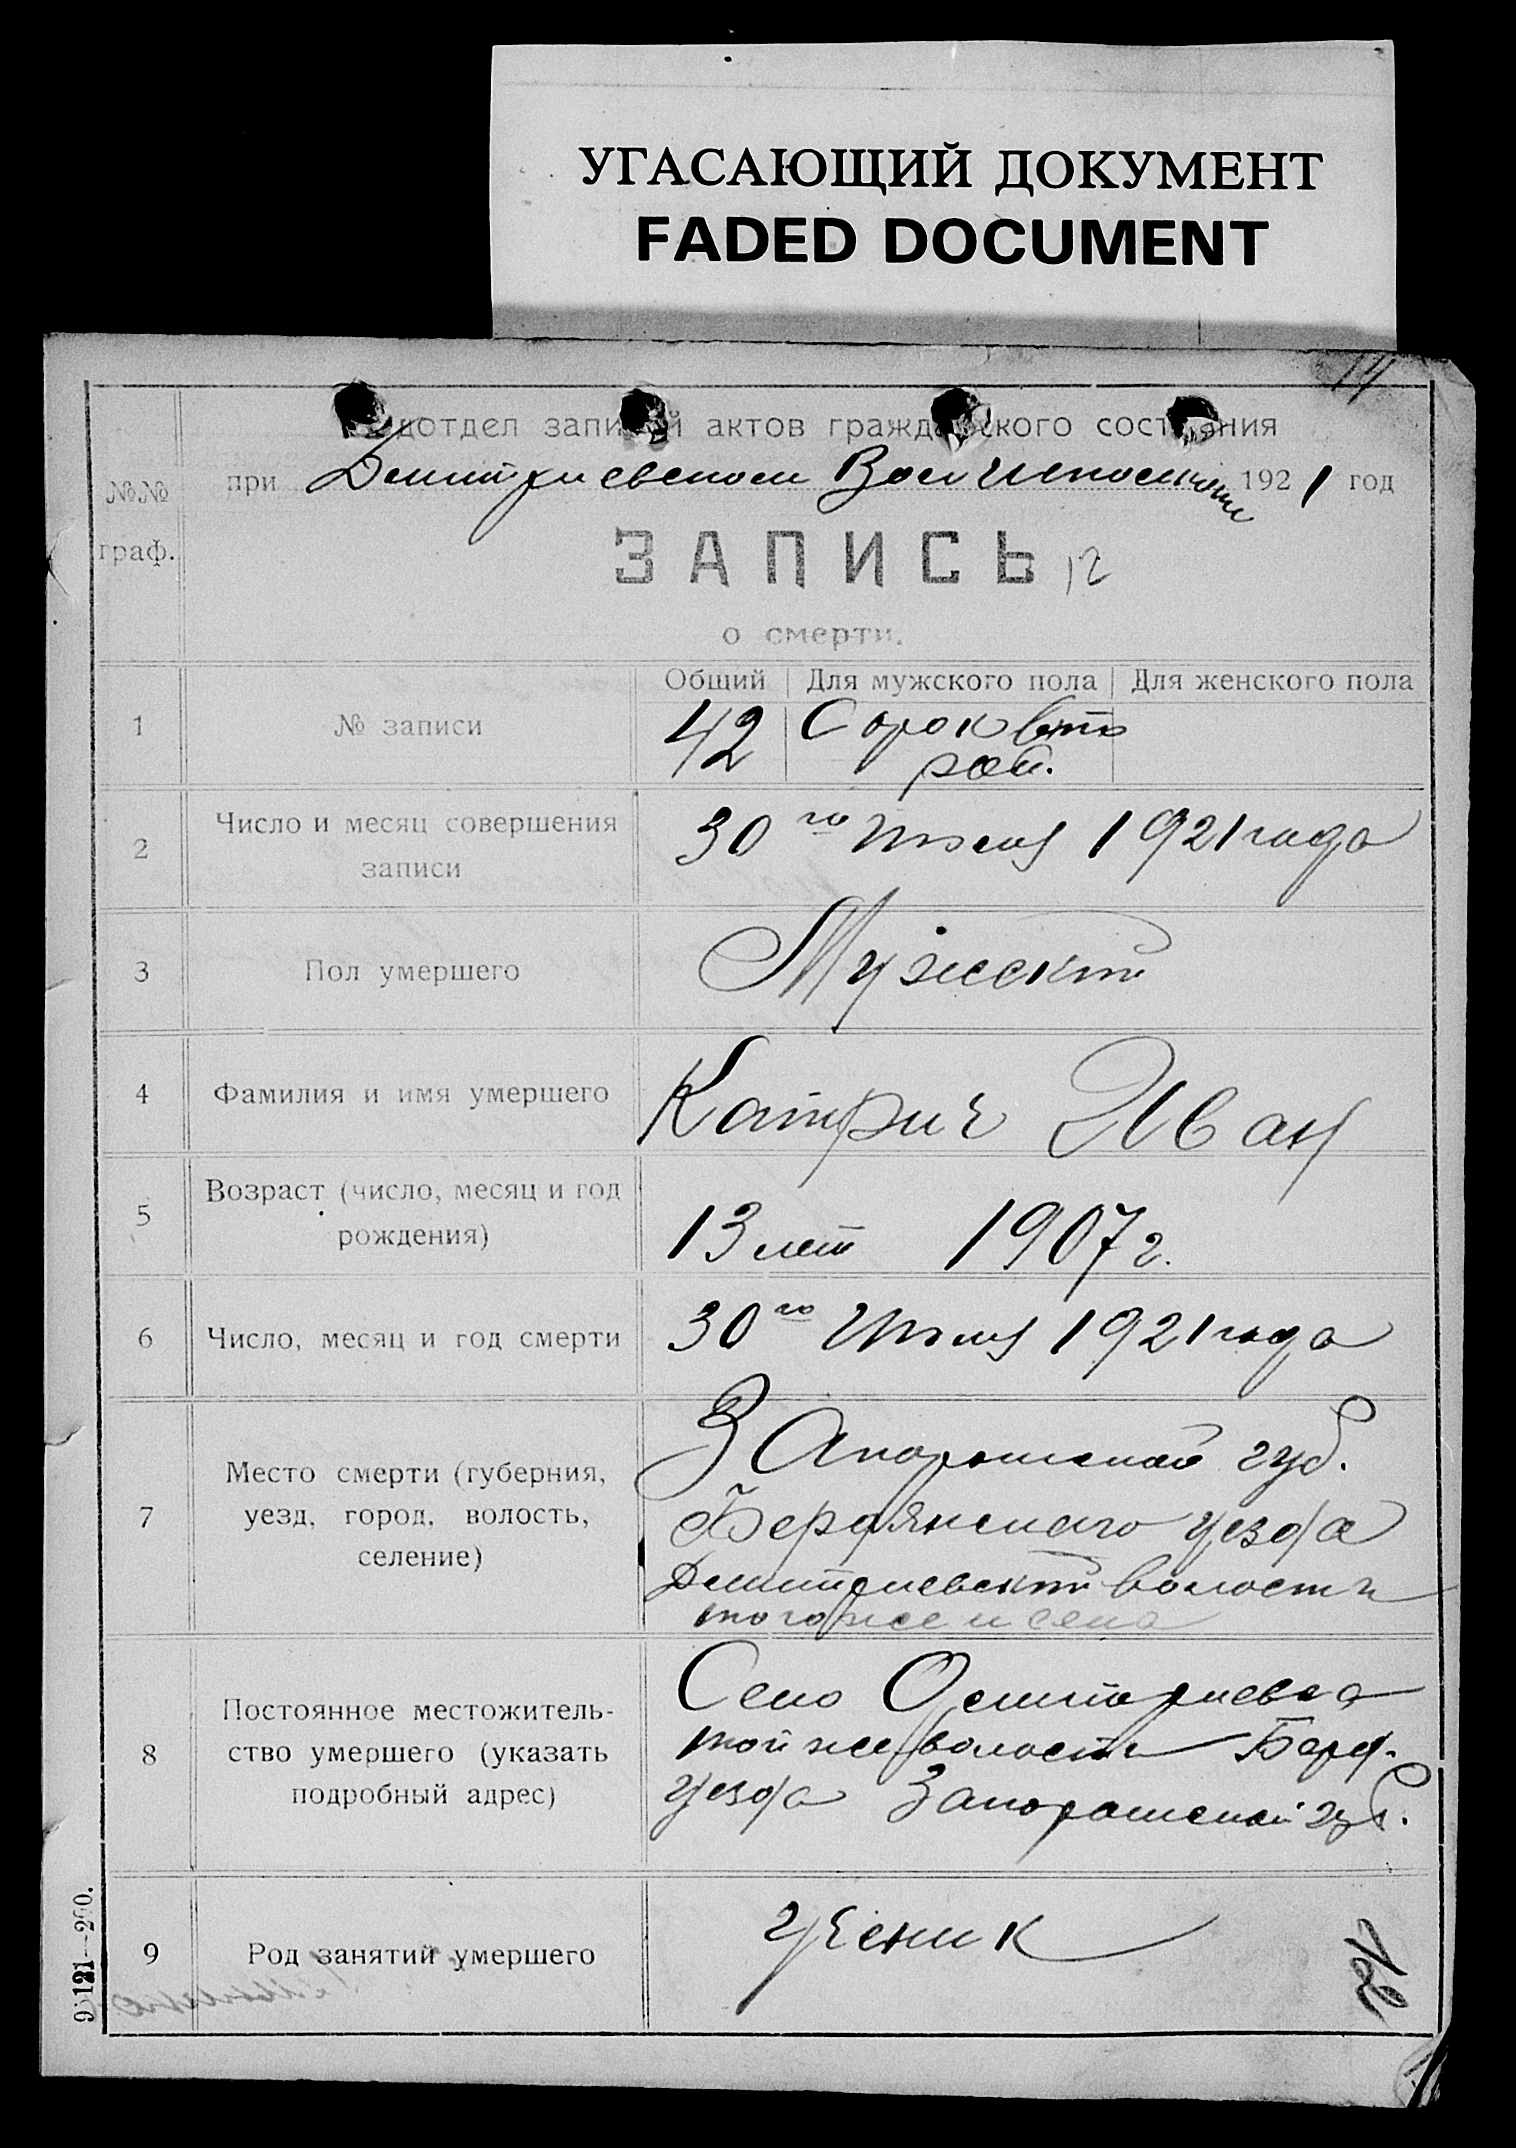 УГАСАЮЩИЙ ДОКУМЕНТ
FADED DOCUMENT
14
Подотдел записей актов гражданского состояния
№№ граф.
при Дмитриевском Вол 1921 год
ЗАПИСЬ 12
о смерти.
Общий Для мужского пола Для женского пола
1 № записи 42 Сорок вто
рой.
2 Число и месяц совершения записи 30го Июля 1921 года
3 Пол умершего Мужской
4 Фамилия и имя умершего Катрич Иван
5 Возраст (число, месяц и год рождения) 13 лет 1907 г.
6 Число, месяц и год смерти 30го Июля 1921 года
7 Место смерти (губерния, уезд, город, волость, селение)
Запорошской губ.
Бердянскаго уезда
Дмитриевской волости
того же и села
8 Постоянное местожитель-
ство умершего (указать
подробный адрес)
Село Дмитриевка
той же волости Берд.
уезда Запорошской губ.
9 Род занятий умершего ученик
12